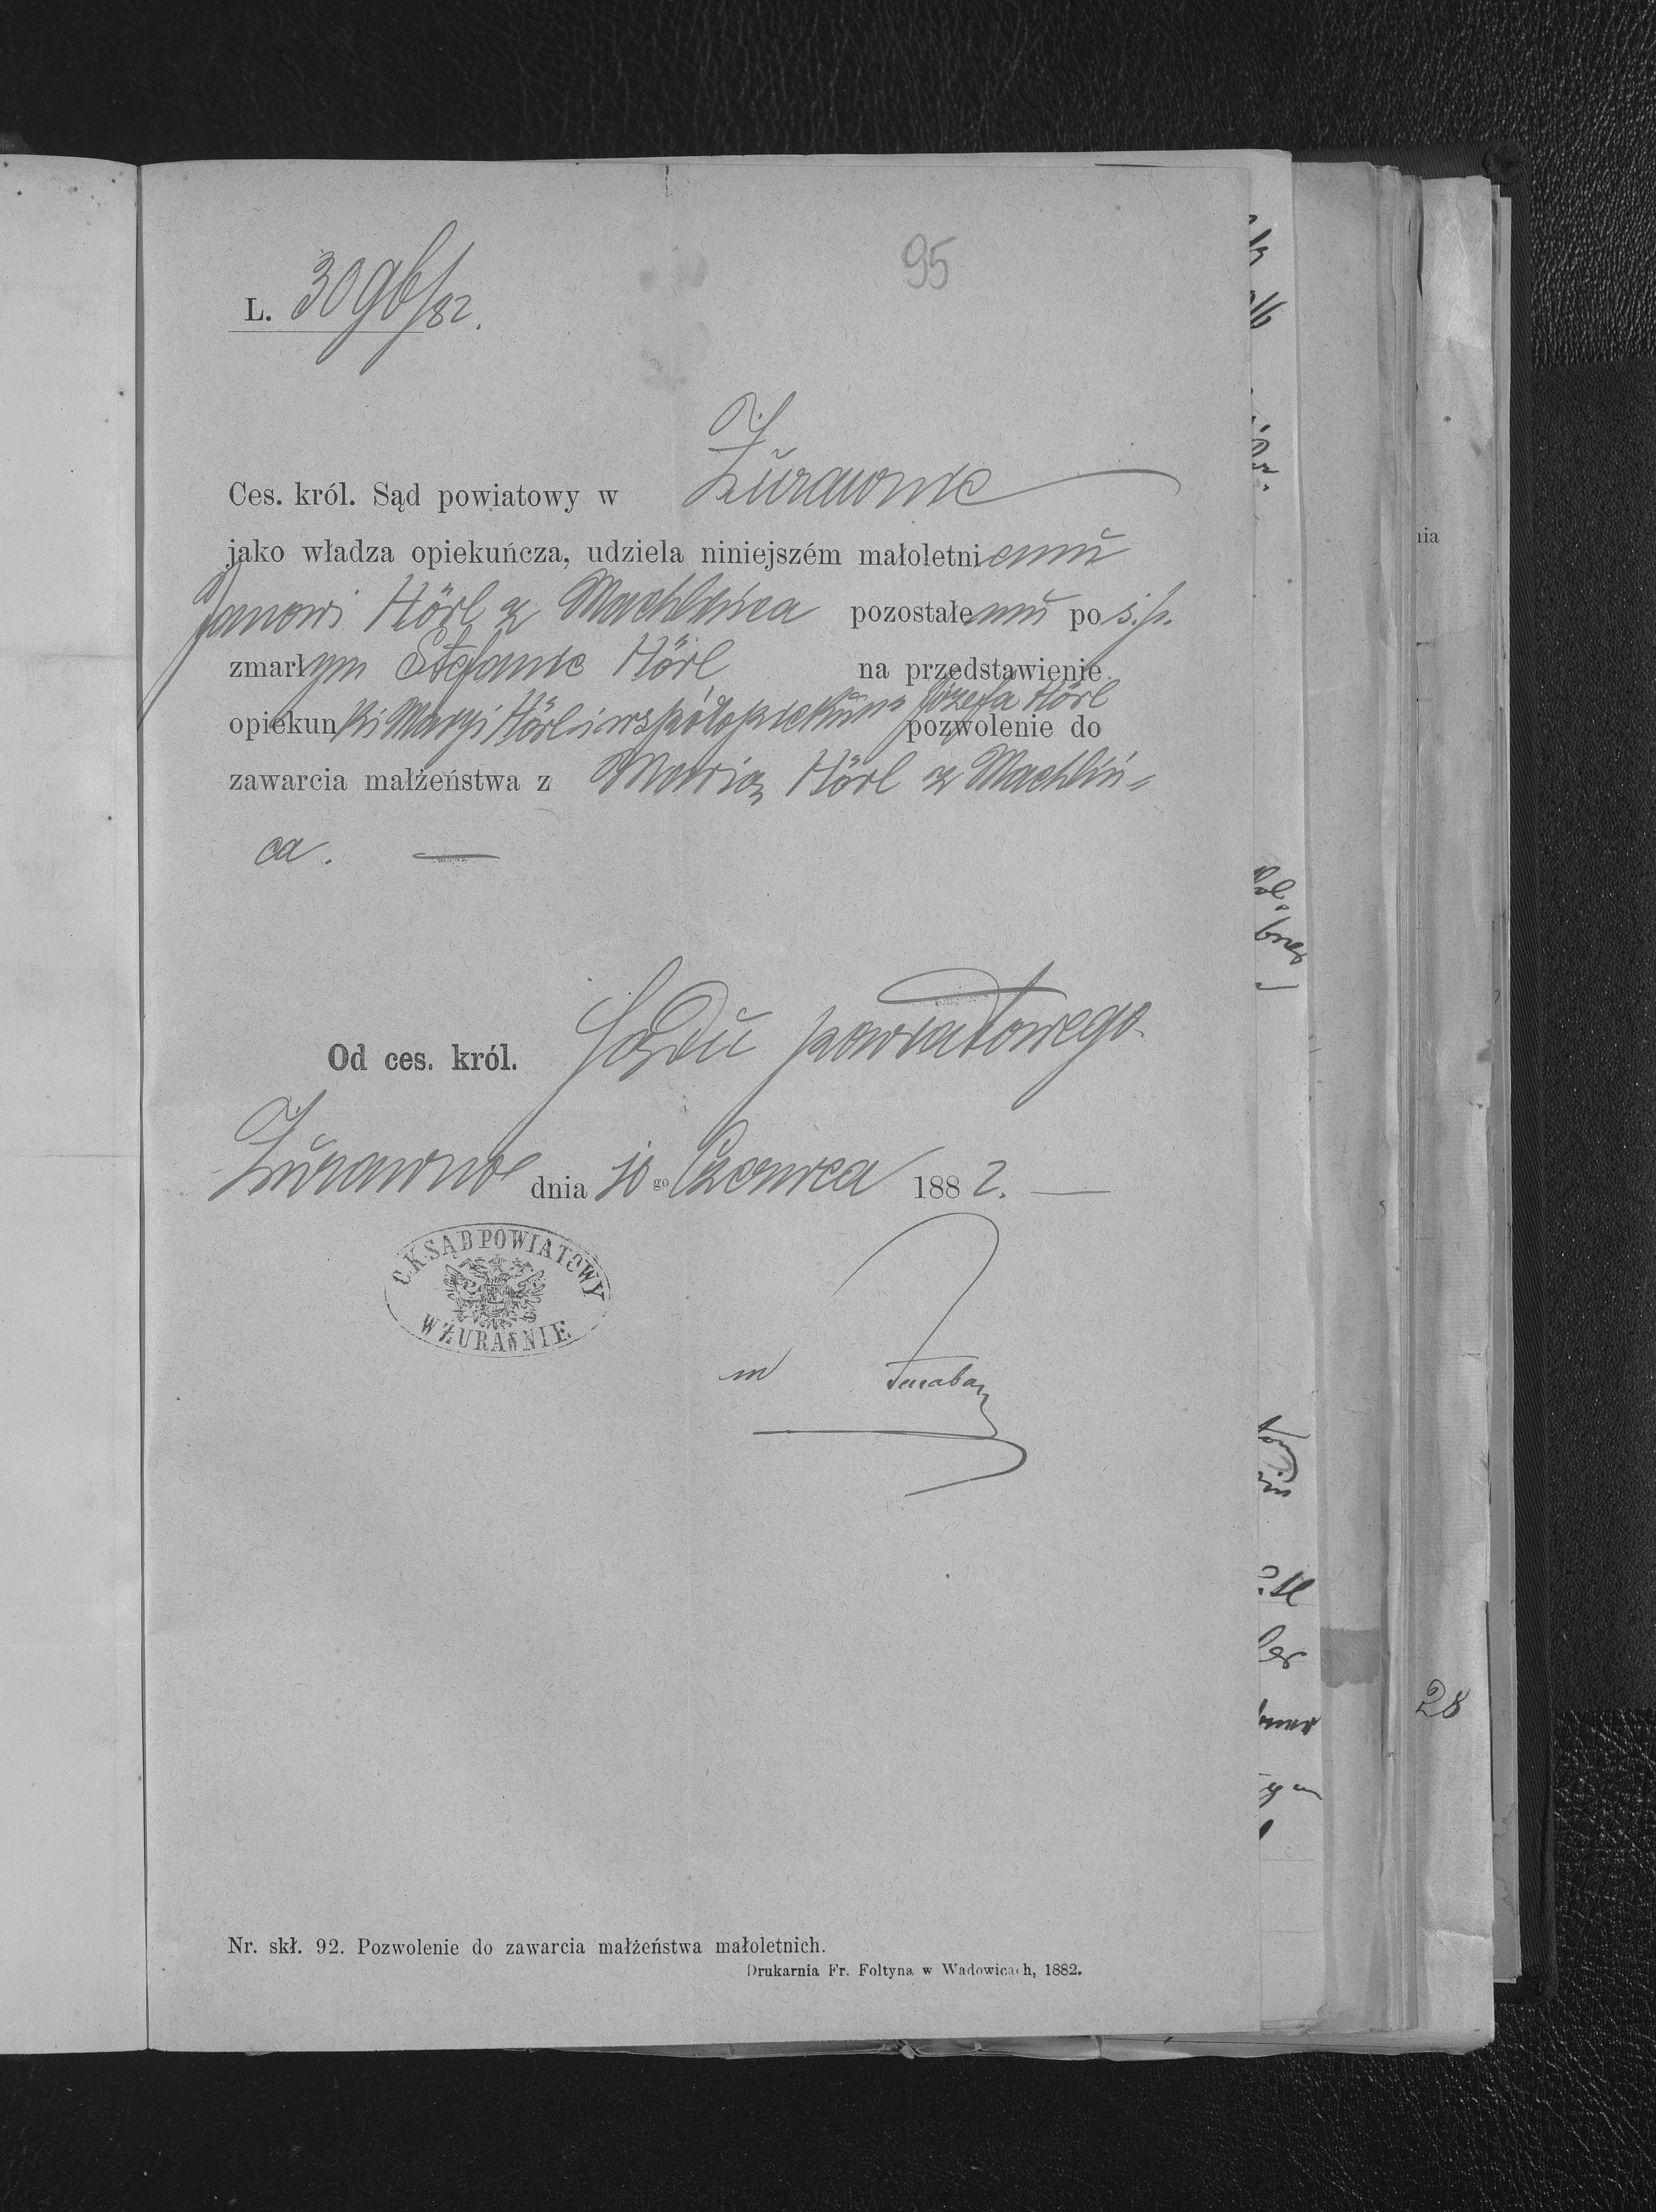 95
L. 3096/82.
Ces. król. Sąd powiatowy w Żurawnie
jako władza opiekuńcza, udziela niniejszém małoletniemu
Janowi Hörl z Machlińca pozostałemu po ś.p.
zmarłym Stefanie Hörl na przedstawienie
opiekunki Maryi Hörl i współopiekuna Józefa Hörl pozwolenie do
zawarcia małżeństwa z Marią Hörl z Machliń=
ca.
Od ces. król. Sądu powiatowego
Żurawno dnia 10 go Czerwca 1882.
C.K.SĄD POWIATOWY
W ŻURAWNIE
Nr. skł. 92. Pozwolenie do zawarcia małżeństwa małoletnich.
Drukarnia Fr. Foltyna w Wadowicach, 1882.
nia
28